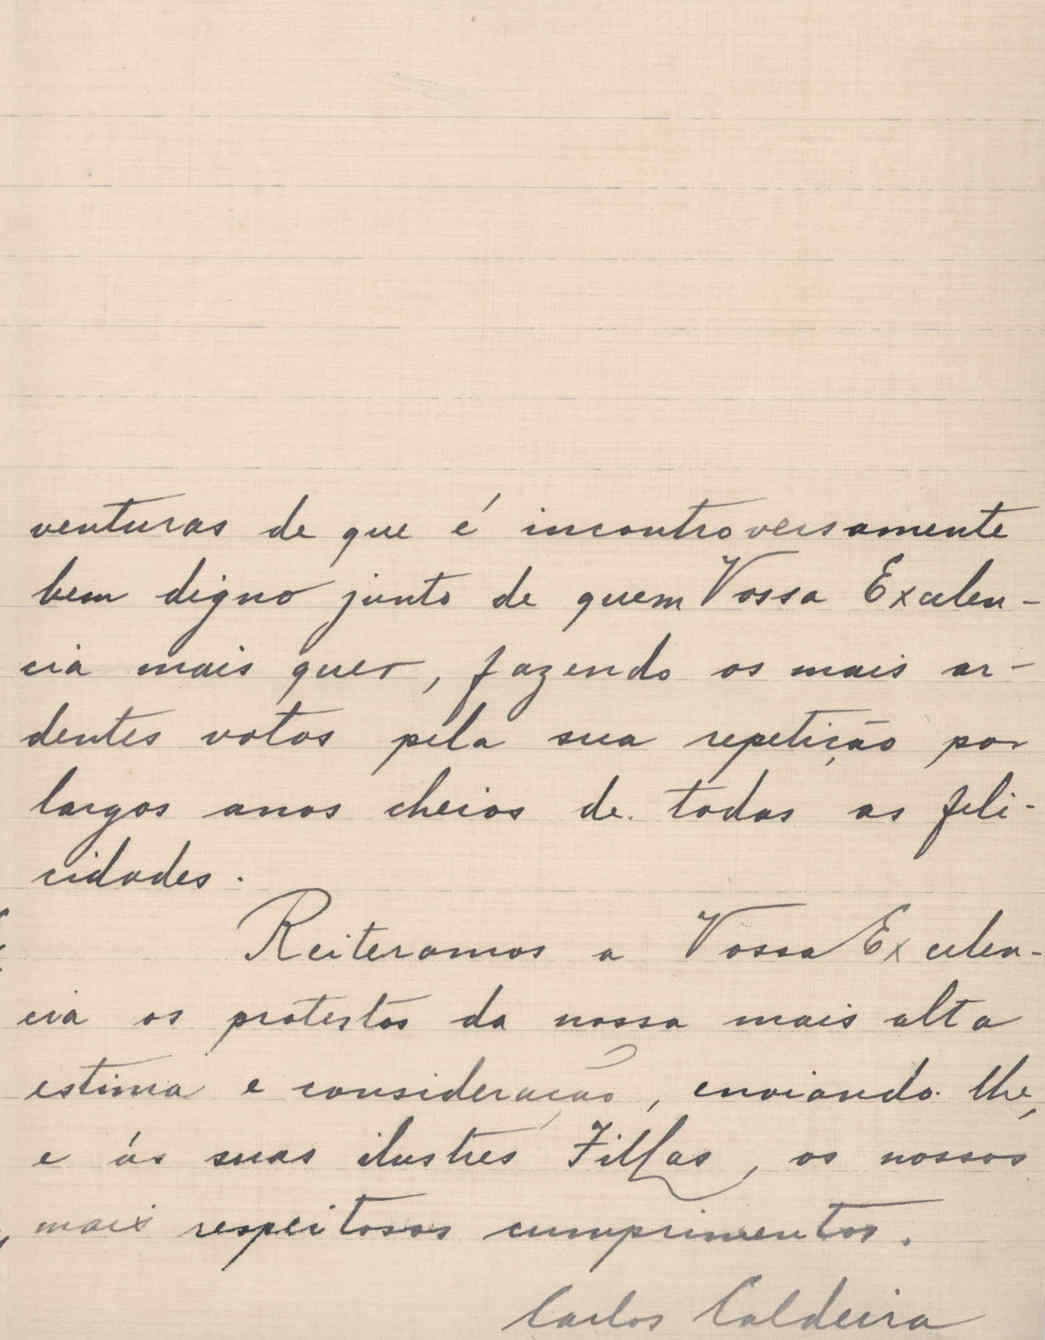 venturas de que é incontroversamente
bem digno junto de quem Vossa Excelen-
cia mais quer, fazendo os mais ar-
dentes votos pela sua repetição por
largos anos cheios de todas as feli-
cidades.
Reiteramos a Vossa Excelen-
cia os protestos da nossa mais alta
estima e consideração, enviando-lhe,
e ás suas ilustres Filhas, os nossos
mais respeitosos cumprimentos.
Carlos Caldeira